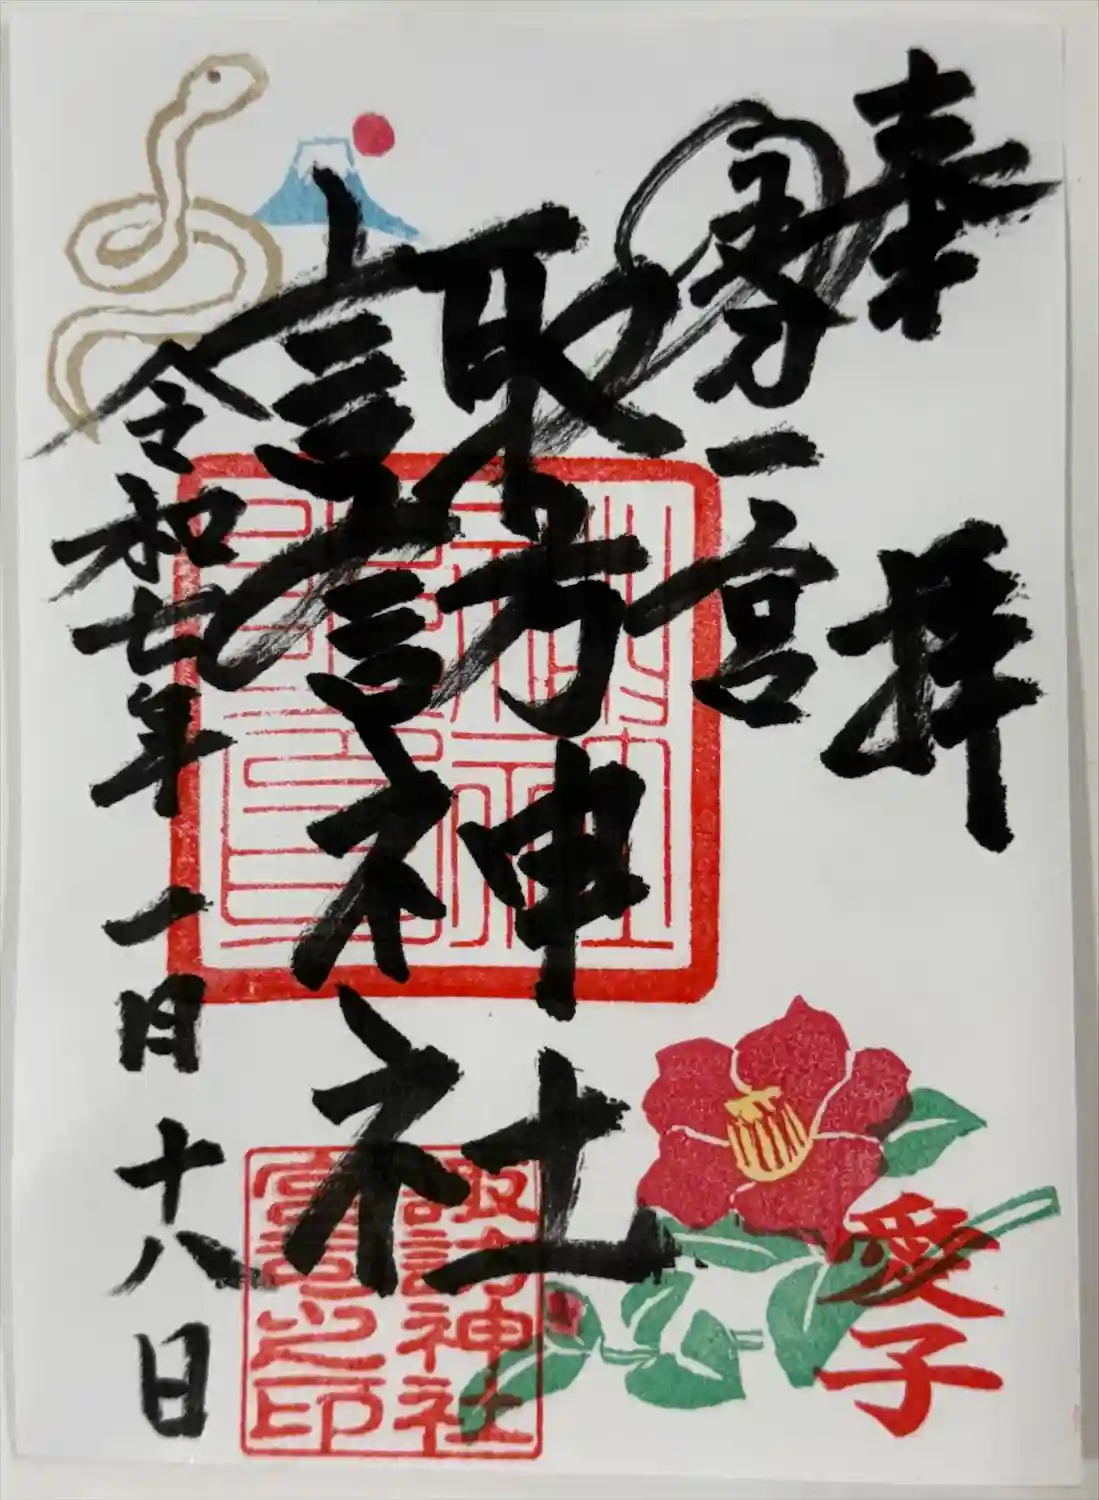 奉拝
國分一宮
諏訪神社
令和七年一月十八日
愛子
諏訪神社
宮司之印